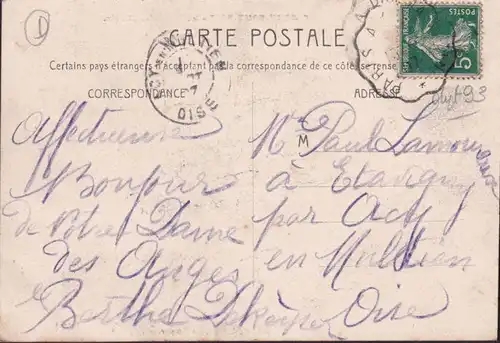 CARTE POSTALE
Certains pays étrangers n'acceptant pas la correspondance de ce côté se rense
CORRESPONDANCE
ADRESSE
POSTES
5
PARIS A
OISE
dépt 93
D
M
Affectueux
Bonjour
de Notre Dame
des Anges
Berthe
Mr Paul Lamou
à Etavigny
par Acy
en Multien
Oise